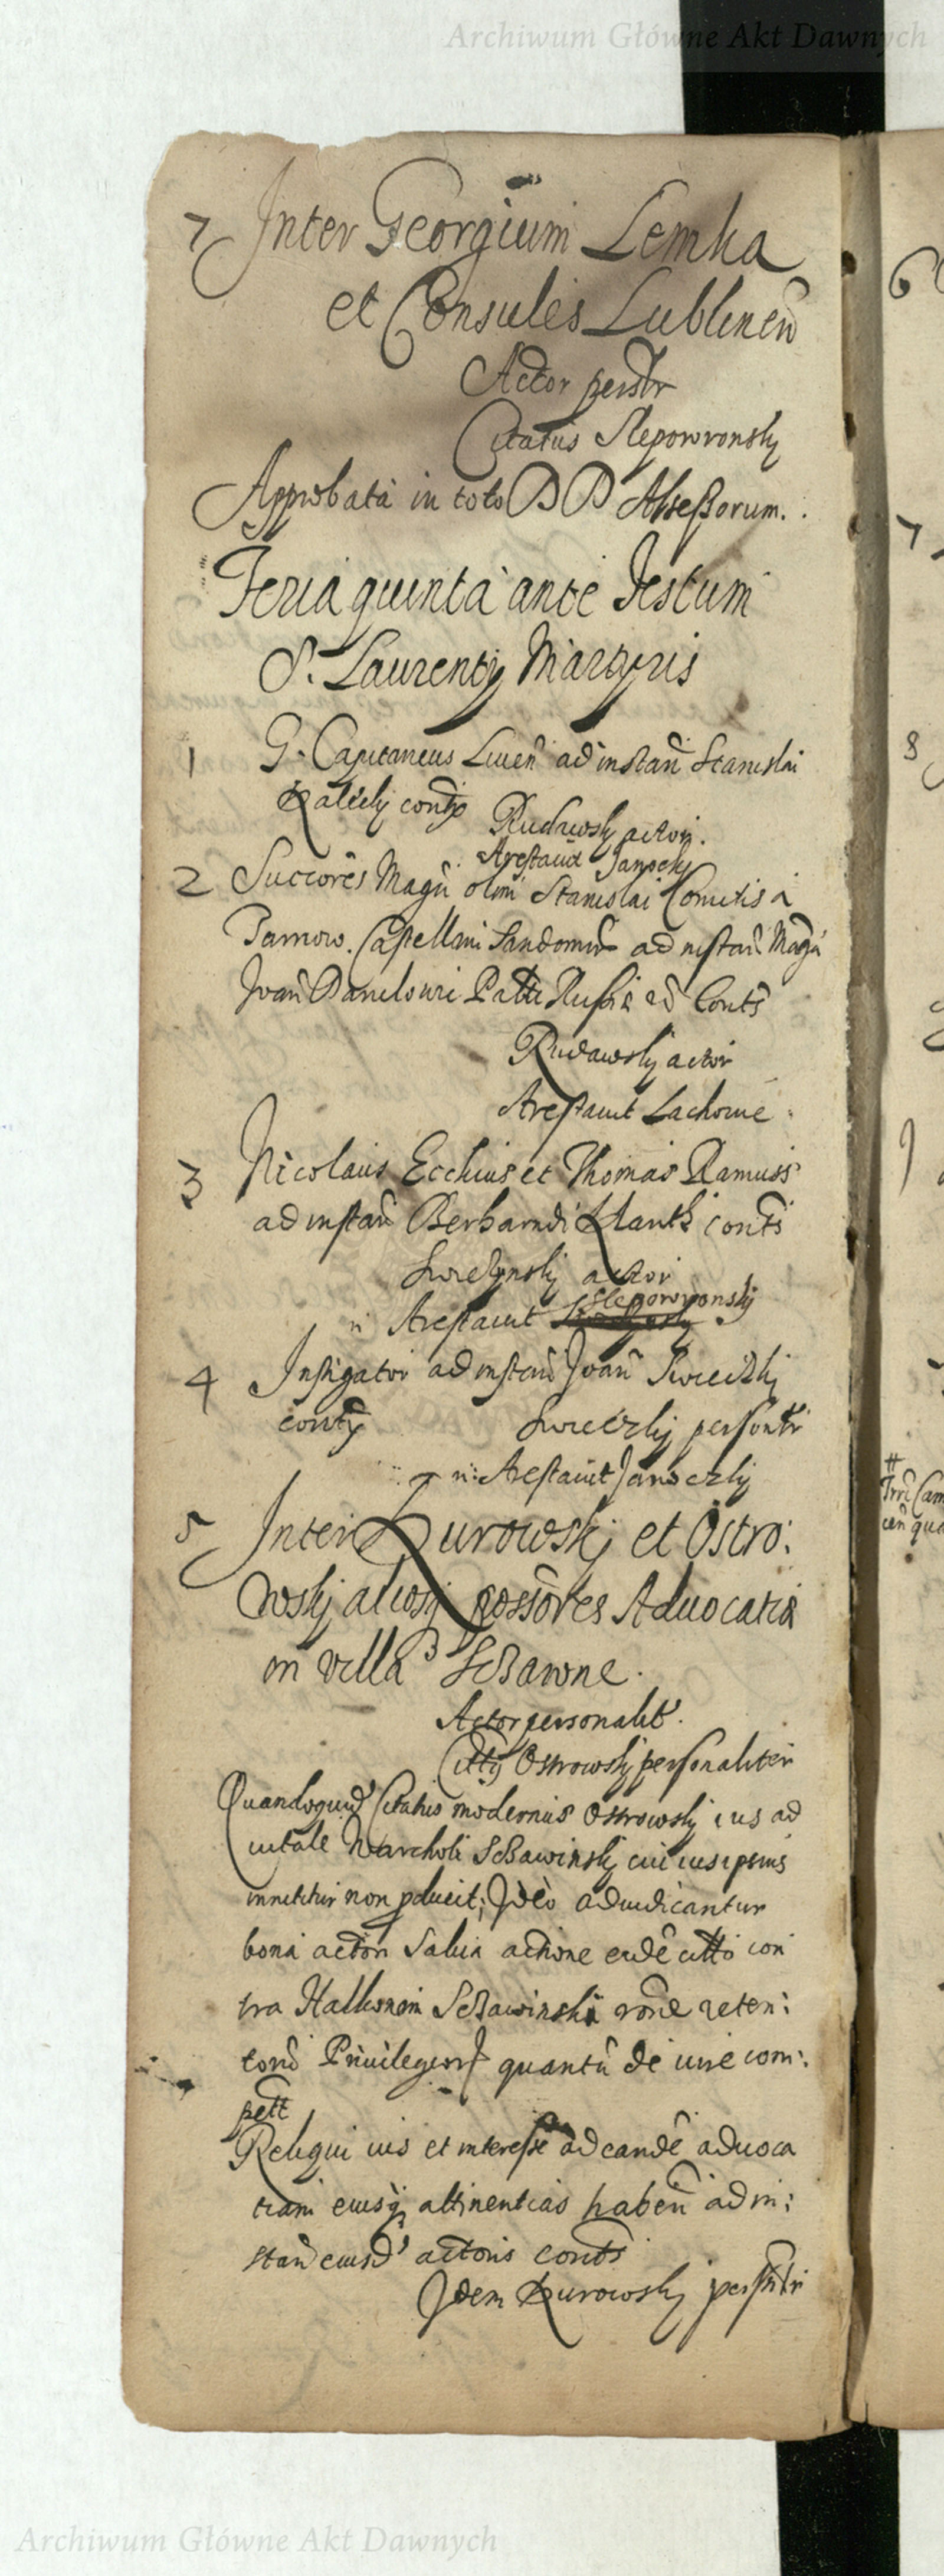 Archiwum Główne Akt Dawnych
7 Inter Georgium Lemka
et Consules Lublinen
Actor persr
Citatus Slepororonsky
Approbata in toto D D Assessorum.
Feria quinta ante Festum
S. Laurentij Martyris
1 G. Capitaneus Liven ad instan Stanislai
conts
Rudawsky actori.
Arestavit Janoczky
2 Succores Magn olim Stanislai Comitis a
Tarnow. Castellani Sandomir ad instan Magn
Joan Danilowi Palti Russia et Conts
Rudawsky actor
Arestavit Lachowie
3 Nicolaus Ecchius et Thomas Ramuss
ad instan Berhamdi conts
actor
n Arestavit Slepororonsky
4 Instigator ad instan Joan Swieczky
conts Swieczky personlr
n: Arestavit Janoczky
5 Inter Kurowsky et Ostro:
wsky aliosq possores Advocatia
in villa Sczawne.
Actor personalit.
Citts Ostrowsky personaliter
Quandoquid Citatus modernus Ostrowsky ius ad
vitale Sczawinsky cui ius ipsius
innititur non pducit; Ideo adiudicantur
bona actori salva actione eide citto con
tra Sczawinski rone reten:
toru Privilegior quantu de iure com:
pett
Reliqui ius et interesse ad eande advoca
tiam eiusq attinentias haben ad in:
stan eiusd actoris conts
Idem Kurowsky personlr
6
7
8
Archiwum Główne Akt Dawnych